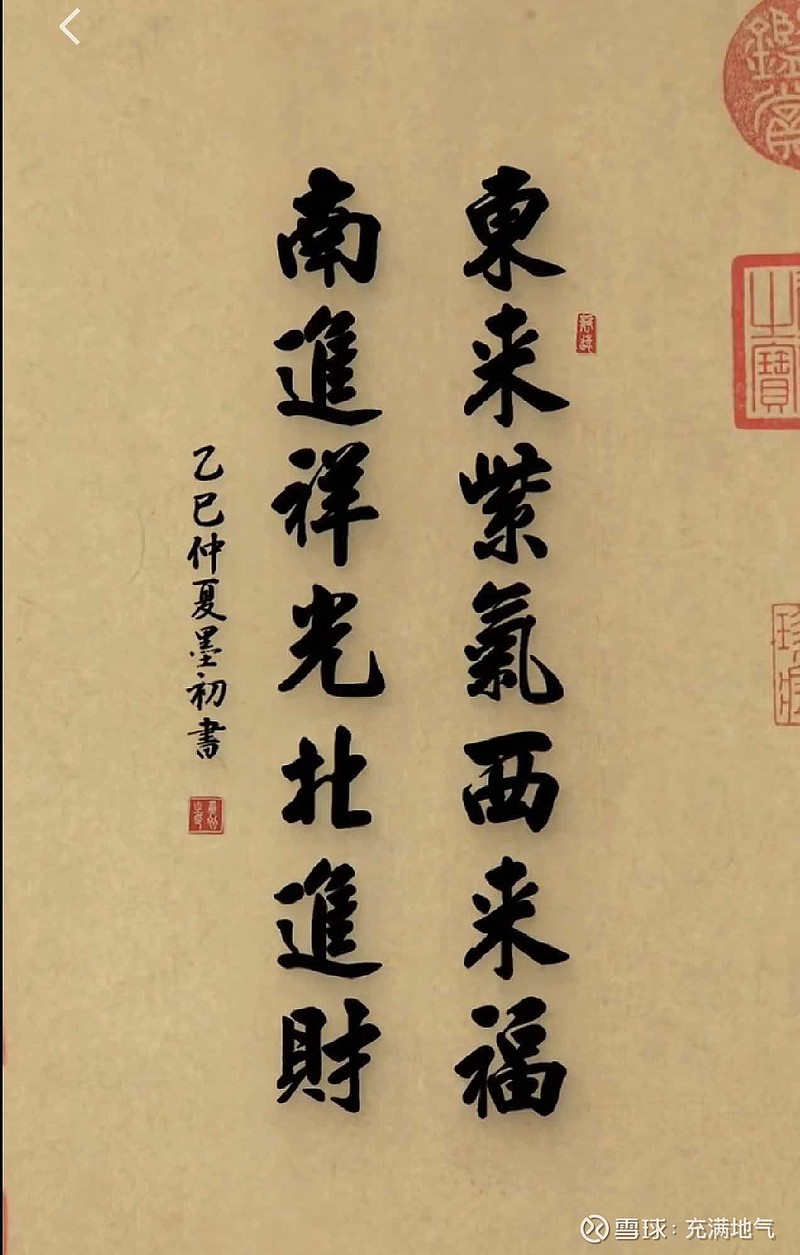 東来紫氣西来福
南進祥光北進財
乙巳仲夏墨初書
雪球：充满地气